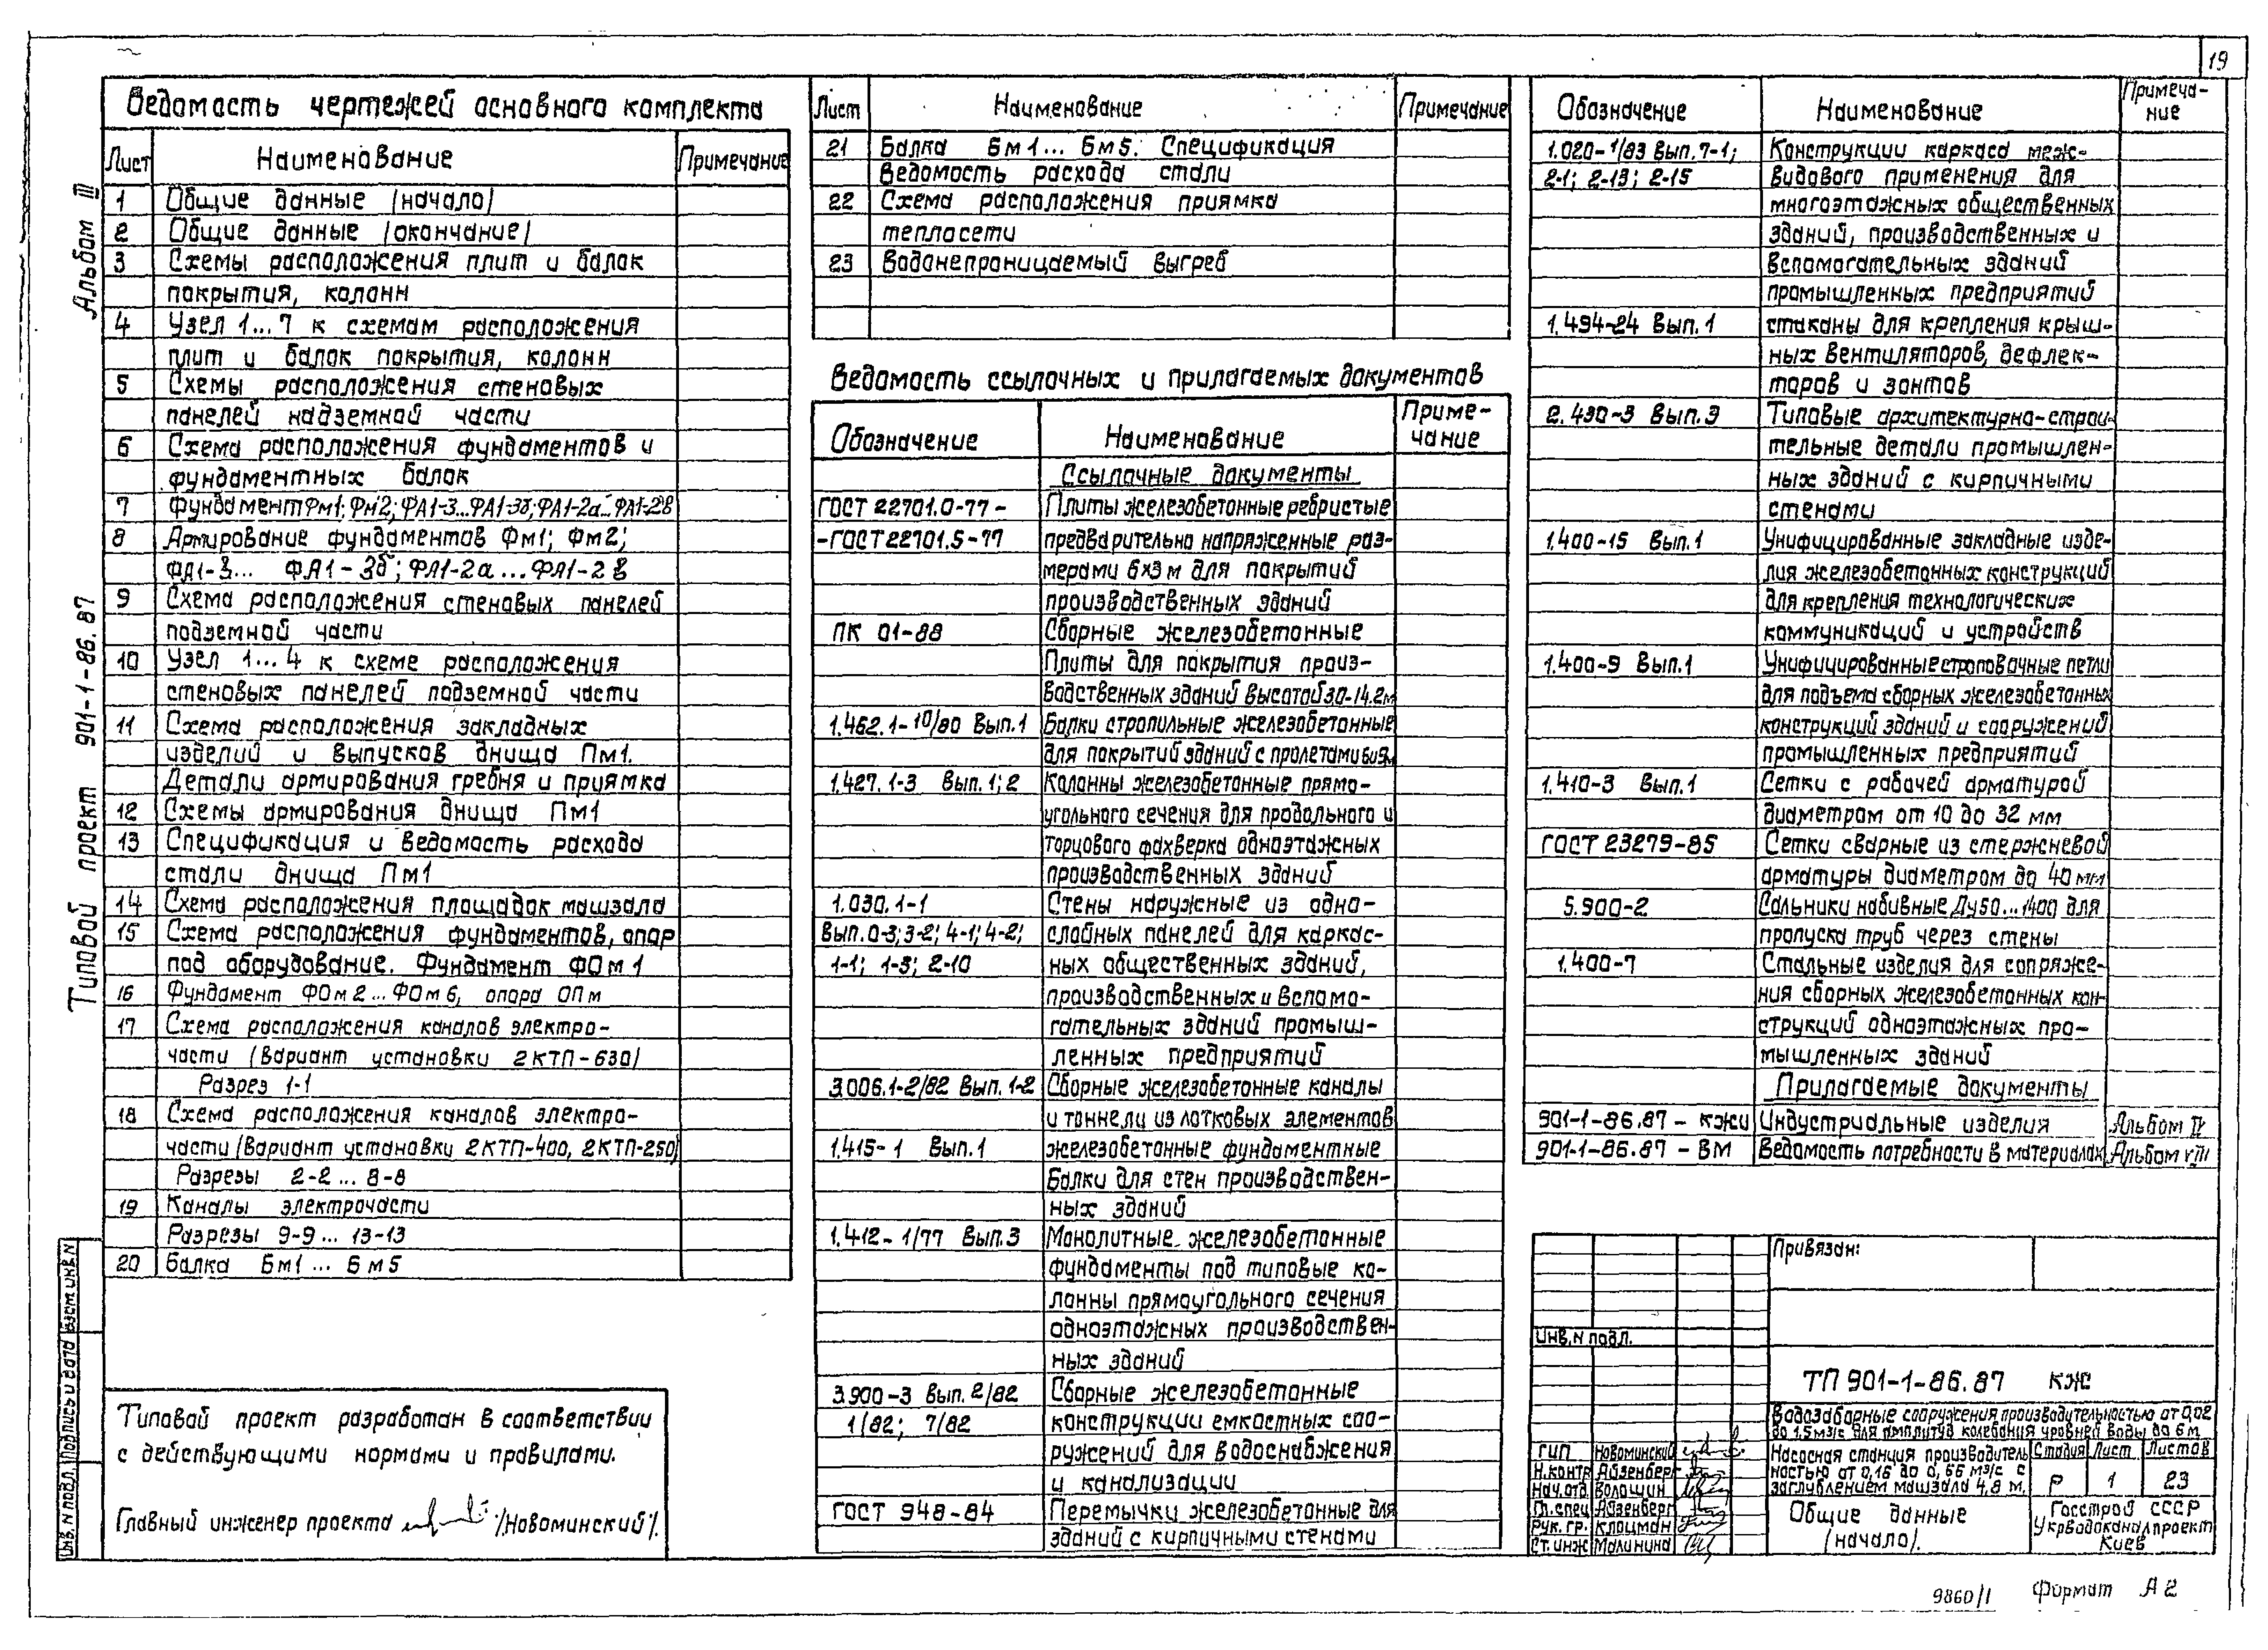 19
Альбом III
Типовой проект 901-1-86.87
Ведомость чертежей основного комплекта
Лист Наименование Примечание
1 Общие данные /начало/
2 Общие данные /окончание/
3 Схемы расположения плит и балок
покрытия, колонн
4 Узел 1...7 к схемам расположения
плит и балок покрытия, колонн
5 Схемы расположения стеновых
панелей надземной части
6 Схема расположения фундаментов и
фундаментных балок
7 Фундамент Фм1; Фм2; ФА1-3...ФА1-3б; ФА1-2а...ФА1-2в
8 Армирование фундаментов Фм1; Фм2;
ФА1-3... ФА1-3б; ФА1-2а...ФА1-2в
9 Схема расположения стеновых панелей
подземной части
10 Узел 1...4 к схеме расположения
стеновых панелей подземной части
11 Схема расположения закладных
изделий и выпусков днища Пм1.
Детали армирования гребня и приямка
12 Схемы армирования днища Пм1
13 Спецификация и ведомость расхода
стали днища Пм1
14 Схема расположения площадок машзала
15 Схема расположения фундаментов, опор
под оборудование. Фундамент ФОм1
16 Фундамент ФОм2...ФОм6, опора ОПм
17 Схема расположения каналов электро-
части /вариант установки 2КТП-630/
Разрез 1-1
18 Схема расположения каналов электро-
части /вариант установки 2КТП-400, 2КТП-250/
Разрезы 2-2...8-8
19 Каналы электрочасти
Разрезы 9-9... 13-13
20 Балка Бм1... Бм5
Типовой проект разработан в соответствии
с действующими нормами и правилами.
Главный инженер проекта /Новоминский/.
Инв. N подл. Подпись и дата Взам инв. N
Лист Наименование Примечание
21 Балка Бм1... Бм5. Спецификация
Ведомость расхода стали
22 Схема расположения приямка
теплосети
23 Водонепроницаемый выгреб
Ведомость ссылочных и прилагаемых документов
Обозначение Наименование Приме-
чание
Ссылочные документы
ГОСТ 22701.0-77 - Плиты железобетонные ребристые
-ГОСТ 22701.5-77 предварительно напряженные раз-
мерами 6х3м для покрытий
производственных зданий
ПК 01-88 Сборные железобетонные
Плиты для покрытия произ-
водственных зданий высотой 3,0-14.2м
1.462.1-10/80 Вып.1 Балки стропильные железобетонные
для покрытий зданий с пролетами 6и9м
1.427.1-3 Вып.1;2 Колонны железобетонные прямо-
угольного сечения для продольного и
торцового фахверка одноэтажных
производственных зданий
1.030.1-1 Стены наружные из одно-
Вып.0-3; 3-2; 4-1; 4-2; слойных панелей для каркас-
1-1; 1-3; 2-10 ных общественных зданий,
производственных и вспомо-
гательных зданий промыш-
ленных предприятий
3.006.1-2/82 Вып.1-2 Сборные железобетонные каналы
и тоннели из лотковых элементов
1.415-1 Вып.1 железобетонные фундаментные
Балки для стен производствен-
ных зданий
1.412-1/77 Вып.3 Монолитные железобетонные
фундаменты под типовые ко-
лонны прямоугольного сечения
одноэтажных производствен-
ных зданий
3.900-3 Вып. 2/82 Сборные железобетонные
1/82; 7/82 конструкции емкостных соо-
ружений для водоснабжения
и канализации
ГОСТ 948-84 Перемычки железобетонные для
зданий с кирпичными стенами
Обозначение Наименование Примеча-
ние
1.020-1/83 Вып.7-1; Конструкции каркаса меж-
2-1; 2-13; 2-15 видового применения для
многоэтажных общественных
зданий, производственных и
вспомогательных зданий
промышленных предприятий
1.494-24 Вып.1 стаканы для крепления крыш-
ных вентиляторов, дефлек-
торов и зонтов
2.430-3 Вып.3 Типовые архитектурно-строи-
тельные детали промышлен-
ных зданий с кирпичными
стенами
1.400-15 Вып.1 Унифицированные закладные изде-
лия железобетонных конструкций
для крепления технологических
коммуникаций и устройств
1.400-9 Вып.1 Унифицированные строповочные петли
для подъема сборных железобетонных
конструкций зданий и сооружений
промышленных предприятий
1.410-3 Вып.1 Сетки с рабочей арматурой
диаметром от 10 до 32 мм
ГОСТ 23279-85 Сетки сварные из стержневой
арматуры диаметром до 40мм
5.900-2 Сальники набивные Ду50...1400 для
пропуска труб через стены
1.400-7 Стальные изделия для сопряже-
ния сборных железобетонных кон-
струкций одноэтажных про-
мышленных зданий
Прилагаемые документы
901-1-86.87 - КЖИ Индустриальные изделия Альбом IV
901-1-86.87 - ВМ Ведомость потребности в материалах Альбом VIII
Привязан:
Инв. N подл.
ТП 901-1-86.87 КЖ
Водозаборные сооружения производительностью от 0,02
до 1,5м3/с для амплитуд колебания уровней воды до 6м
ГИП Новоминский
Н.контр Айзенберг
Нач.отд. Волошин
Гл.спец Айзенберг
Рук.гр. Клоцман
Ст.инж Малинина
Насосная станция производитель
ностью от 0,16 до 0,66 м3/с с
заглублением машзала 4,8 м.
Стадия Лист Листов
Р 1 23
Общие данные
/начало/.
Госстрой СССР
Укрводоканалпроект
Киев
9860/1 Формат А2